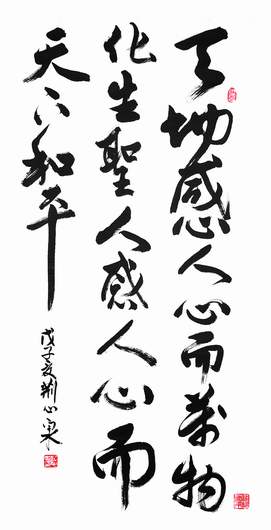 天地感人心而萬物
化生聖人感人心而
天下和平
戊子夏荆心